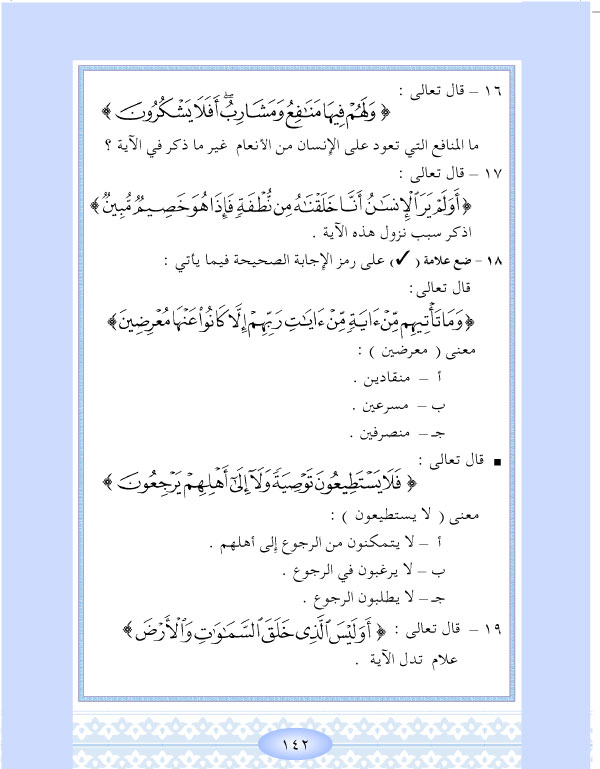 ١٦ – قال تعالى :
﴿ وَلَهُمْ فِيهَا مَنَٰفِعُ وَمَشَارِبُ ۖ أَفَلَا يَشْكُرُونَ ﴾
ما المنافع التي تعود على الإنسان من الأنعام غير ما ذكر في الآية ؟
١٧ – قال تعالى :
﴿ أَوَلَمْ يَرَ ٱلْإِنسَٰنُ أَنَّا خَلَقْنَٰهُ مِن نُّطْفَةٍ فَإِذَا هُوَ خَصِيمٌ مُّبِينٌ ﴾
اذكر سبب نزول هذه الآية .
١٨ – ضع علامة ( ✓ ) على رمز الإجابة الصحيحة فيما يأتي :
قال تعالى:
﴿ وَمَا تَأْتِيهِم مِّنْ ءَايَةٍ مِّنْ ءَايَٰتِ رَبِّهِمْ إِلَّا كَانُوا۟ عَنْهَا مُعْرِضِينَ ﴾
معنى ( معرضين ) :
أ – منقادين .
ب – مسرعين .
جـ – منصرفين .
■ قال تعالى :
﴿ فَلَا يَسْتَطِيعُونَ تَوْصِيَةً وَلَآ إِلَىٰٓ أَهْلِهِمْ يَرْجِعُونَ ﴾
معنى ( لا يستطيعون ) :
أ – لا يتمكنون من الرجوع إلى أهلهم .
ب – لا يرغبون في الرجوع .
جـ – لا يطلبون الرجوع .
١٩ – قال تعالى : ﴿ أَوَلَيْسَ ٱلَّذِى خَلَقَ ٱلسَّمَٰوَٰتِ وَٱلْأَرْضَ ﴾
علام تدل الآية .
١٤٢